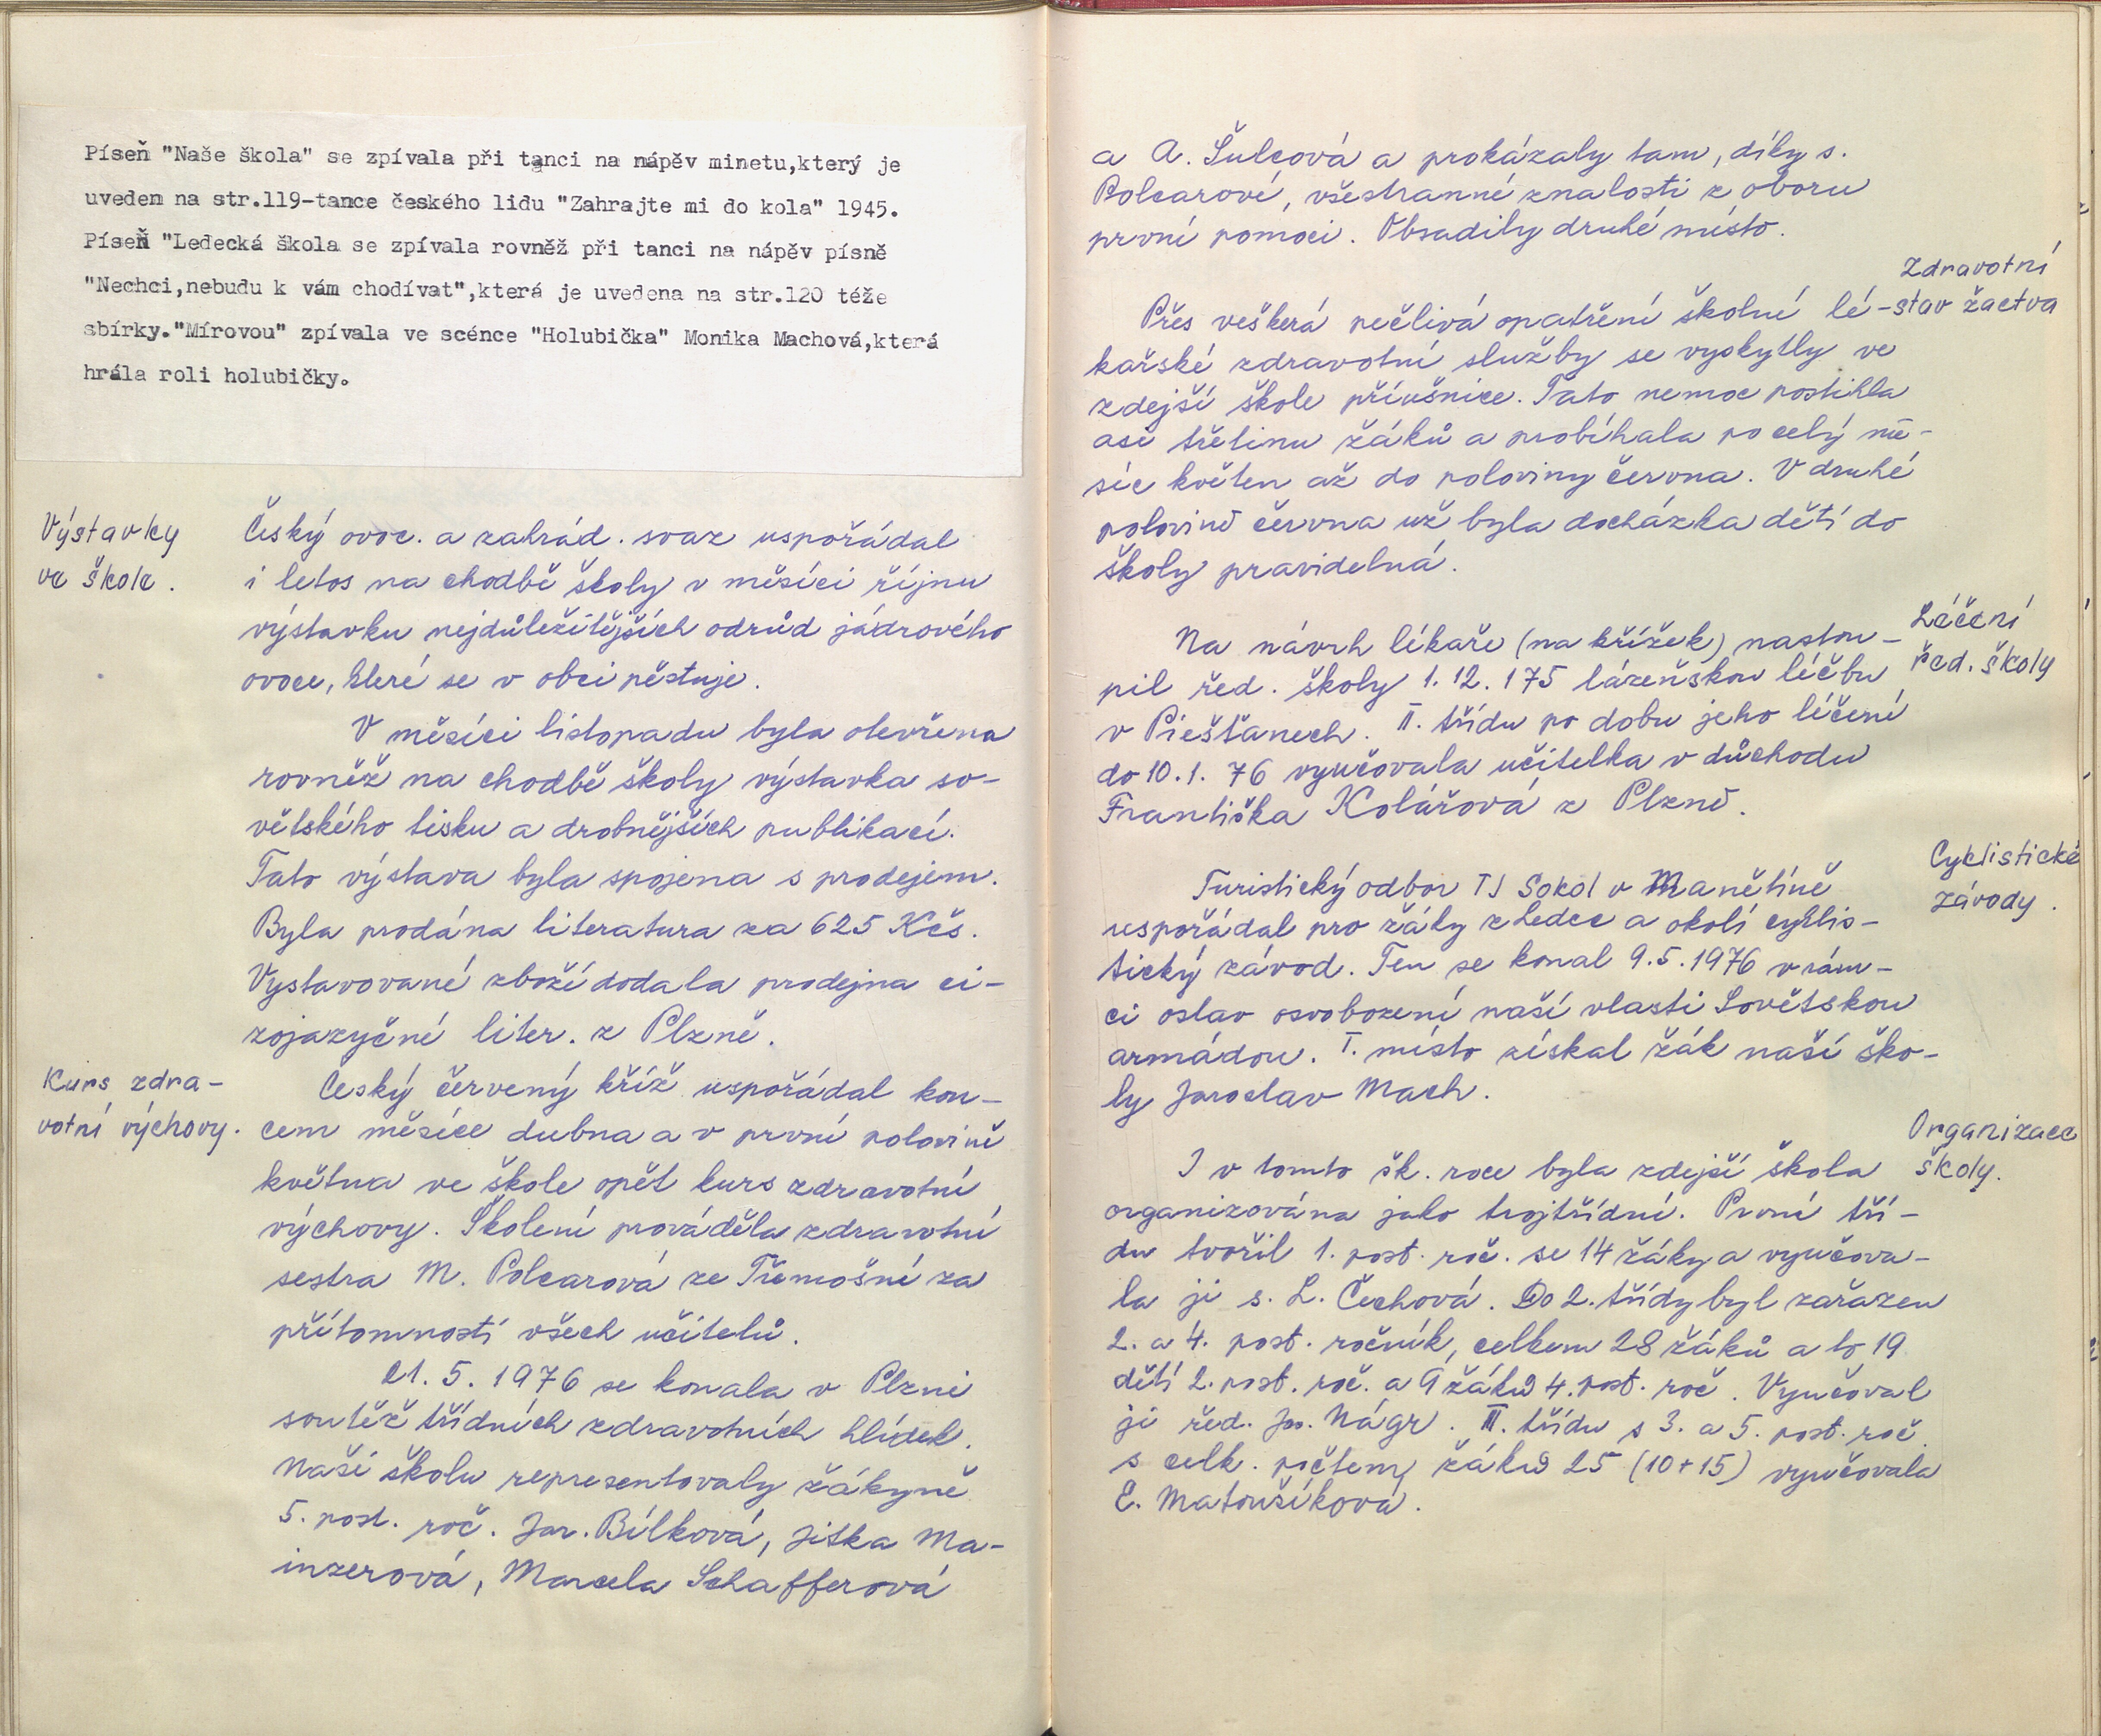 Píseň "Naše škola" se zpívala při tanci na nápěv minetu,který je
uveden na str.119-tance českého lidu "Zahrajte mi do kola" 1945.
Píseň "Ledecká škola se zpívala rovněž při tanci na nápěv písně
"Nechci,nebudu k vám chodívat",která je uvedena na str.120 téže
sbírky."Mírovou" zpívala ve scénce "Holubička" Monika Machová,která
hrála roli holubičky.
Výstavky
ve škole.
Český ovoc. a zahrád. svaz uspořádal
i letos na chodbě školy v měsíci říjnu
výstavku nejdůležitějších odrůd jádrového
ovoce, které se v obci pěstuje.
V měsíci listopadu byla otevřena
rovněž na chodbě školy výstavka so-
větského tisku a drobnějších publikací.
Tato výstava byla spojena s prodejem.
Byla prodána literatura za 625 Kčs.
Vystavované zboží dodala prodejna ci-
zojazyčné liter. z Plzně.
Kurs zdra-
votní výchovy.
Český červený kříž uspořádal kon-
cem měsíce dubna a v první polovině
května ve škole opět kurs zdravotní
výchovy. Školení prováděla zdravotní
sestra M. Polcarová ze Třemošné za
přítomností všech učitelů.
21. 5. 1976 se konala v Plzni
soutěž třídních zdravotních hlídek.
Naši školu representovaly žákyně
5. post. roč. Jar. Bílková, Jitka Ma-
inzerová, Marcela Schafferová
a A. Šulcová a prokázaly tam, díky s.
Polcarové, všestranné znalosti z oboru
první pomoci. Obsadily druhé místo.
Zdravotní
stav žactva
Přes veškerá pečlivá opatření školní lé-
kařské zdravotní služby se vyskytly ve
zdejší škole příušnice. Tato nemoc postihla
asi třetinu žáků a probíhala po celý mě-
síc květen až do poloviny června. V druhé
polovině června už byla docházka dětí do
školy pravidelná.
Léčení
řed. školy
Na návrh lékaře (na křížek) nastou-
pil řed. školy 1. 12. 175 lázeňskou léčbu
v Piešťanech. II. třídu po dobu jeho léčení
do 10. 1. 76 vyučovala učitelka v důchodu
Františka Kolářová z Plzně.
Cyklistické
závody.
Turistický odbor TJ Sokol v Manětíně
uspořádal pro žáky z Ledec a okolí cyklis-
tický závod. Ten se konal 9. 5. 1976 v rám-
ci oslav osvobození naší vlasti Sovětskou
armádou. I. místo získal žák naší ško-
ly Jaroslav Mach.
Organizace
školy.
I v tomto šk. roce byla zdejší škola
organizována jako trojtřídní. První tří-
du tvořil 1. post. roč. se 14 žáky a vyučova-
la ji s. L. Čechová. Do 2. třídy byl zařazen
2. a 4. post. ročník, celkem 28 žáků a to 19
dětí 2. post. roč. a 9 žáků 4. post. roč. Vyučoval
ji řed. Jos. Nágr. III. třídu s 3. a 5. post. roč.
s celk. počtem žáků 25 (10+15) vyučovala
E. Matoušíková.